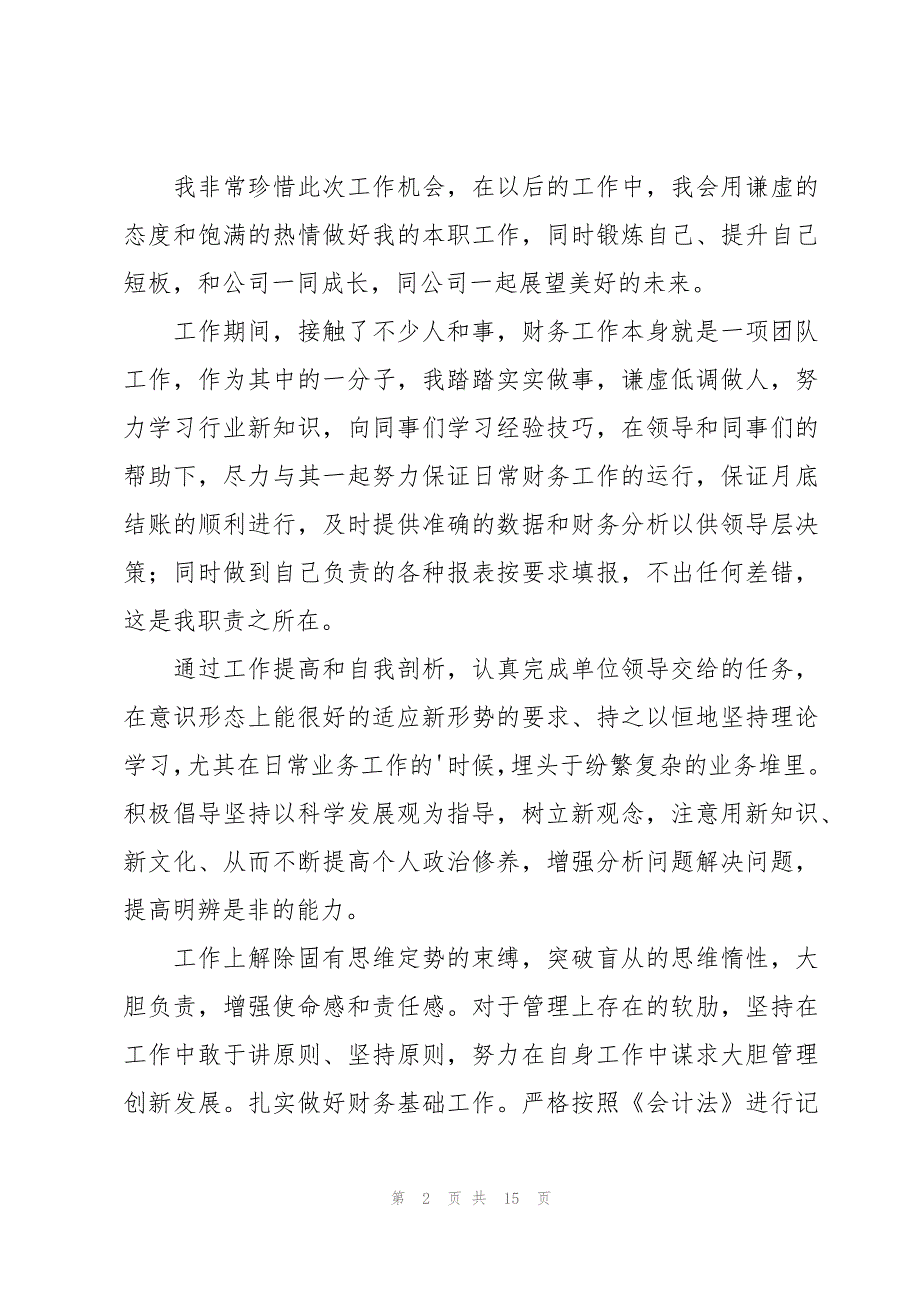 我非常珍惜此次工作机会，在以后的工作中，我会用谦虚的
态度和饱满的热情做好我的本职工作，同时锻炼自己、提升自己
短板，和公司一同成长，同公司一起展望美好的未来。
工作期间，接触了不少人和事，财务工作本身就是一项团队
工作，作为其中的一分子，我踏踏实实做事，谦虚低调做人，努
力学习行业新知识，向同事们学习经验技巧，在领导和同事们的
帮助下，尽力与其一起努力保证日常财务工作的运行，保证月底
结账的顺利进行，及时提供准确的数据和财务分析以供领导层决
策；同时做到自己负责的各种报表按要求填报，不出任何差错，
这是我职责之所在。
通过工作提高和自我剖析，认真完成单位领导交给的任务，
在意识形态上能很好的适应新形势的要求、持之以恒地坚持理论
学习,尤其在日常业务工作的'时候,埋头于纷繁复杂的业务堆里。
积极倡导坚持以科学发展观为指导，树立新观念，注意用新知识、
新文化、从而不断提高个人政治修养，增强分析问题解决问题，
提高明辨是非的能力。
工作上解除固有思维定势的束缚，突破盲从的思维惰性，大
胆负责，增强使命感和责任感。对于管理上存在的软肋，坚持在
工作中敢于讲原则、坚持原则，努力在自身工作中谋求大胆管理
创新发展。扎实做好财务基础工作。严格按照《会计法》进行记
第 2 页 共 15 页